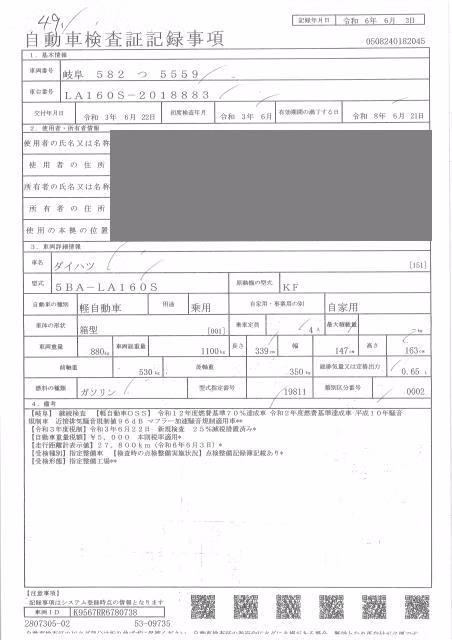 49
記録年月日 令和 6年 6月 3日
自動車検査証記録事項
0508240182045
1．基本情報
車両番号 岐阜 582 つ 5559
車台番号 LA160S-2018883
交付年月日 令和 3年 6月 22日 初度検査年月 令和 3年 6月 有効期間の満了する日 令和 8年 6月 21日
2．使用者・所有者情報
使用者の氏名又は名称
使用者の住所
所有者の氏名又は名称
所有者の住所
使用の本拠の位置
3．車両詳細情報
車名 ダイハツ [151]
型式 5BA-LA160S 原動機の型式 KF
自動車の種別 軽自動車 用途 乗用 自家用・事業用の別 自家用
車体の形状 箱型 [001] 乗車定員 4人 最大積載量 -kg
車両重量 880kg 車両総重量 1100kg 長さ 339cm 幅 147cm 高さ 163cm
前軸重 530kg 後軸重 350kg 総排気量又は定格出力 0.65 L
燃料の種類 ガソリン 型式指定番号 19811 類別区分番号 0002
4．備考
【岐阜】 継続検査 【軽自動車OSS】 令和12年度燃費基準70%達成車 令和2年度燃費基準達成車 平成10年騒音
規制車 近接排気騒音規制値96dB マフラー加速騒音規制適用車**
【令和3年度税制】令和3年6月22日 新規検査 25%減税措置済み*
【自動車重量税額】¥5,000 本則税率適用*
【走行距離計表示値】27,800km（令和6年6月3日）*
【受検種別】指定整備車 【検査時の点検整備実施状況】点検整備記録簿記載あり*
【受検形態】指定整備工場**
【注意事項】
記録事項はシステム登録時点の情報となります
車両ID K9567RR6780738
2807305-02 53-09735